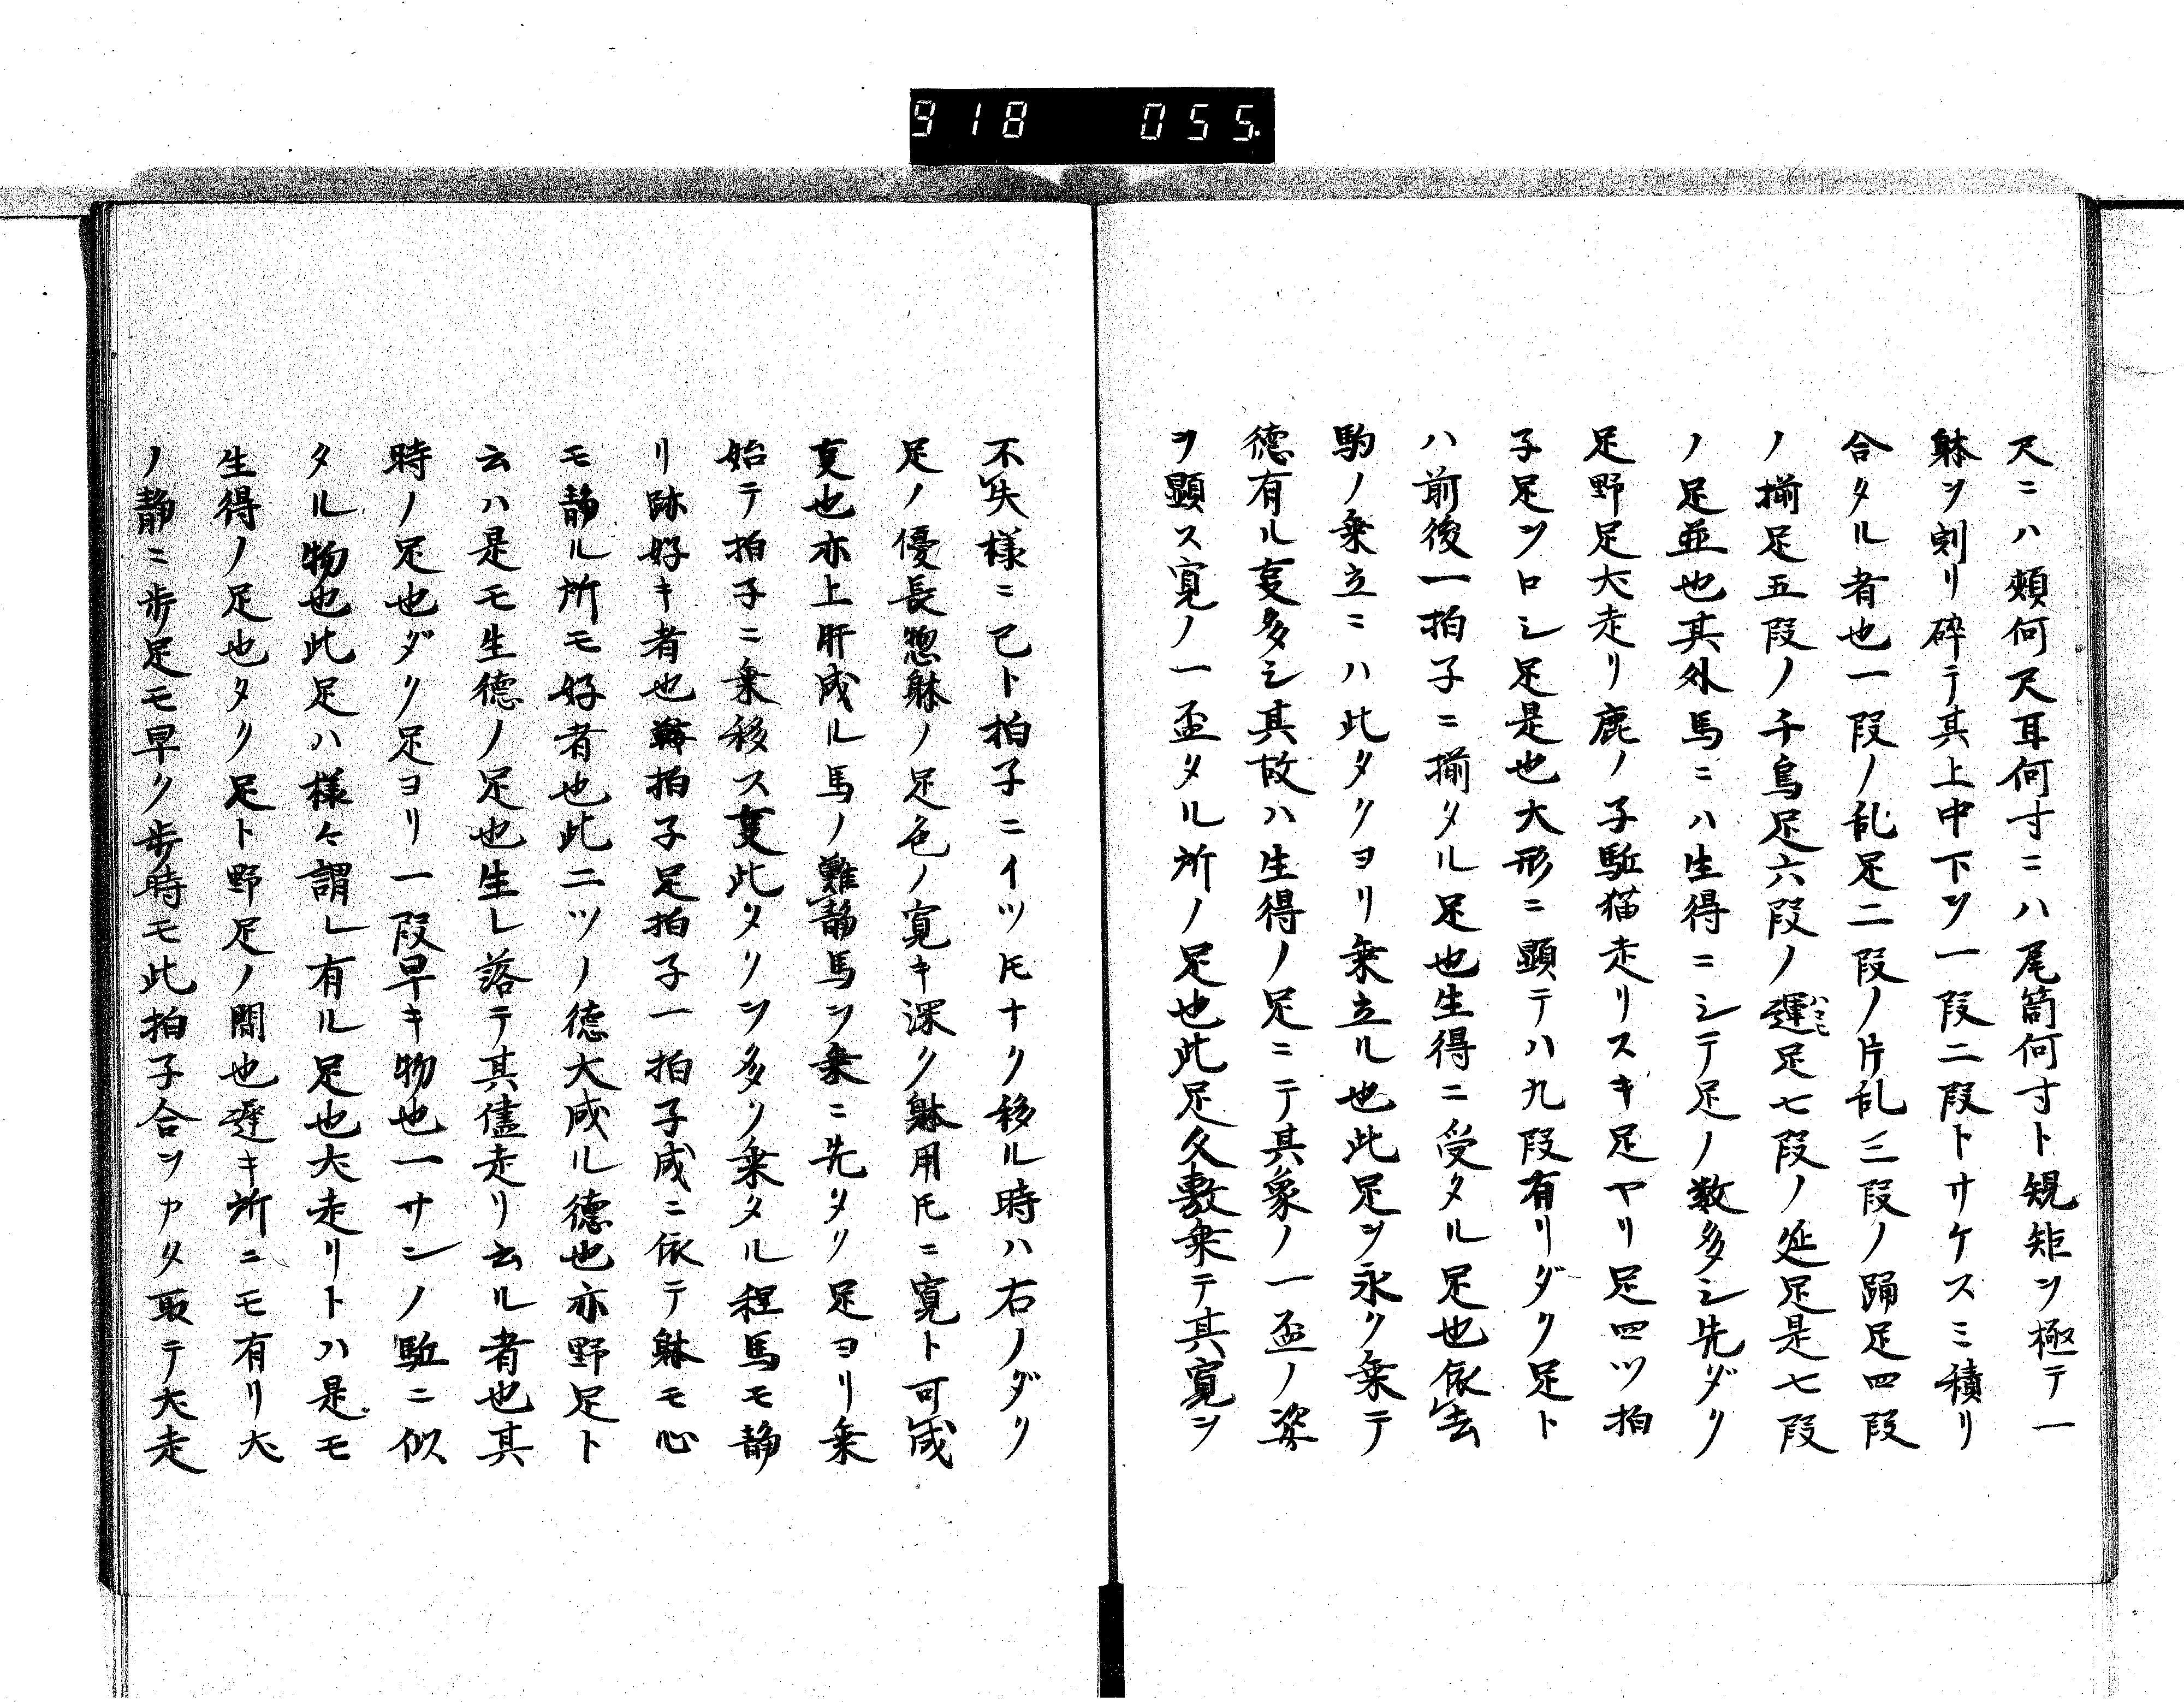 918 055.
尺ニハ頰何尺耳何寸ニハ尾筒何寸ト規矩ヲ極テ一
躰ヲ刻リ砕テ其上中下ヲ一段二段トサケスミ積リ
合タル者也一段ノ乱足二段ノ片乱三段ノ踊足四段
ノ揃足五段ノ千鳥足六段ノ遲足七段ノ延足是七段
ノ足並也其外馬ニハ生得ニシテ足ノ数多シ先ダク
足野足犬走リ鹿ノ子駈猫走リスキ足ヤリ足四ツ拍
子足ツロシ足是也大形ニ顕テハ九段有リダク足ト
ハ前後一拍子ニ揃タル足也生得ニ受タル足也依去
駒ノ乗立ニハ此タクヨリ乗立ル也此足ヲ永ク乗テ
德有ル叓多シ其故ハ生得ノ足ニテ其象ノ一盃ノ姿
ヲ顕ス寛ノ一盃タル所ノ足也此足久敷乗テ其寛ヲ
不失様ニ已ト拍子ニイツ𪜈ナク移ル時ハ右ノダク
足ノ優長惣躰ノ足色ノ寛キ深ク躰用𪜈ニ寛ト可成
叓也亦上肝成ル馬ノ難静馬ヲ乗ニ先タク足ヨリ乗
始テ拍子ニ乗移ス叓此タクヲ多ク乗タル程馬モ静
リ跡好キ者也拍子足拍子一拍子成ニ依テ躰モ心
モ静ル所モ好者也此二ツノ德大成ル德也亦野足ト
云ハ是モ生德ノ足也生レ落テ其儘走リ云ル者也其
時ノ足也ダク足ヨリ一段早キ物也一サンノ駈ニ似
タル物也此足ハ様々謂レ有ル足也犬走リトハ是モ
生得ノ足也タク足ト野足ノ間也遲キ所ニモ有リ犬
ノ静ニ歩足モ早ク歩時モ此拍子合ヲカタ取テ犬走